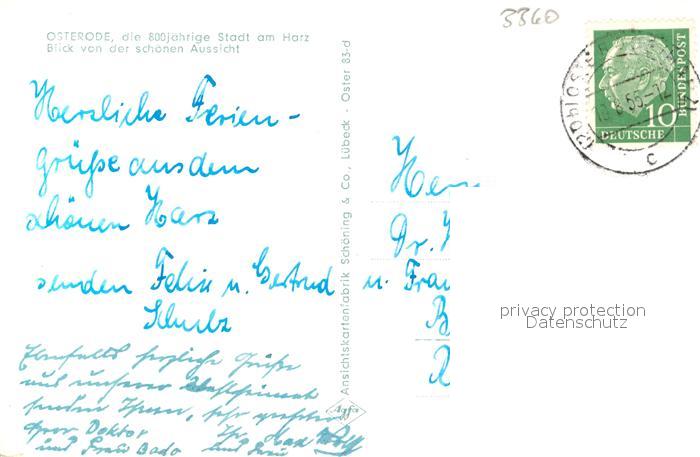 3360
OSTERODE, die 800jährige Stadt am Harz
Blick von der schönen Aussicht
Herzliche Ferien-
grüße aus dem
schönen Harz
senden Felix u. Gertrud
Schulz
Ebenfalls herzliche Grüße
aus unserer
senden Ihnen, sehr geehrter
Herr Doktor
und Frau und Frau
Ansichtskartenfabrik Schöning & Co., Lübeck · Oster 83-d
Agfa
Dr.
u. Frau
privacy protection
Datenschutz
10
DEUTSCHE
BUNDESPOST
(20b) OSTERODE
c